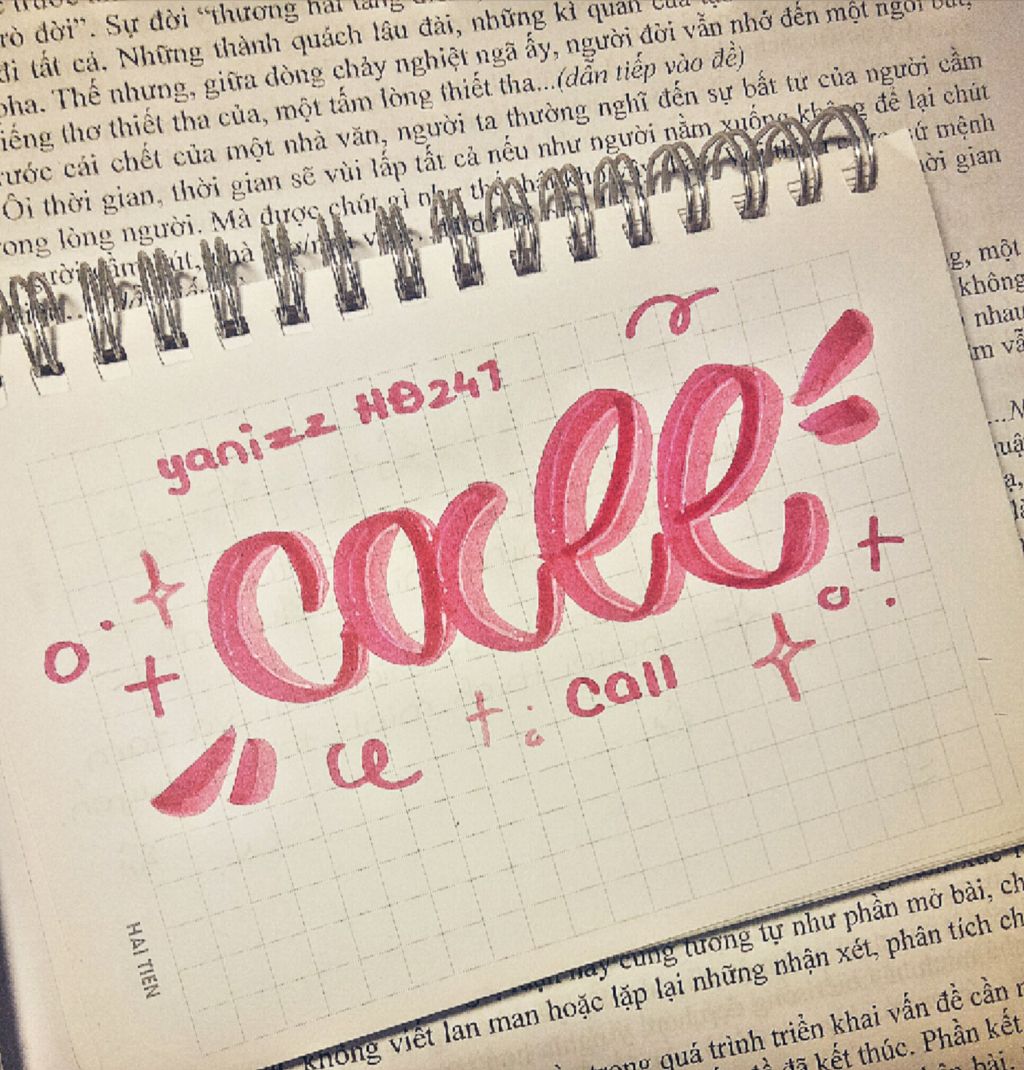 rò đời”. Sự đời “thương hải tang
đi tất cả. Những thành quách lâu đài, những kì quan của
pha. Thế nhưng, giữa dòng chảy nghiệt ngã ấy, người đời vẫn nhớ đến một ngòi bút,
iếng thơ thiết tha của, một tấm lòng thiết tha...(dẫn tiếp vào đề)
rước cái chết của một nhà văn, người ta thường nghĩ đến sự bất tử của người cầm
Ôi thời gian, thời gian sẽ vùi lấp tất cả nếu như người nằm xuống không để lại chút
rong lòng người. Mà được chút gì như thế
sứ mệnh
ời gian
g, một
không
nhau
m vẫ
yanizz HĐ247
call
call
HẢI TIẾN
này cũng tương tự như phần mở bài, ch
không viết lan man hoặc lặp lại những nhận xét, phân tích ch
trong quá trình triển khai vấn đề cần
đã kết thúc. Phần kết
bài.